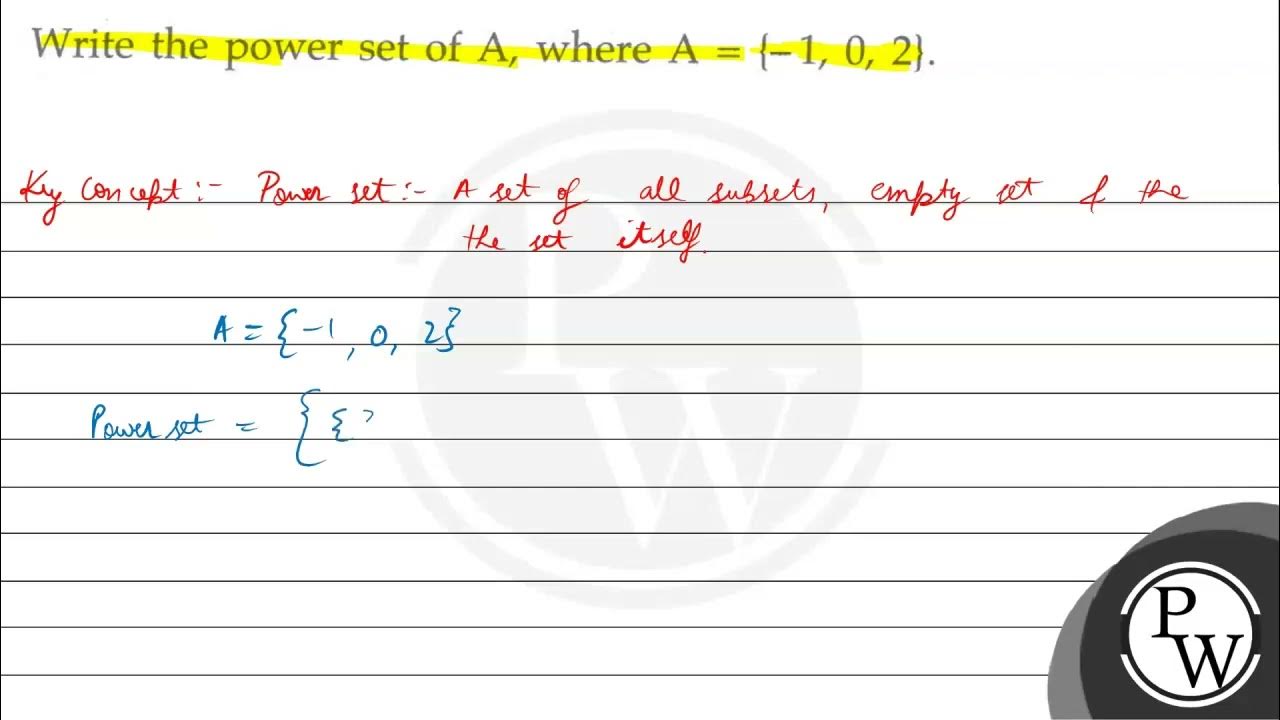 Write the power set of A, where A = {–1, 0, 2}.
Key Concept :- Power set :- A set of all subsets, empty set & the
the set itself.
A = {-1, 0, 2}
Power set = { { }
PW
PW